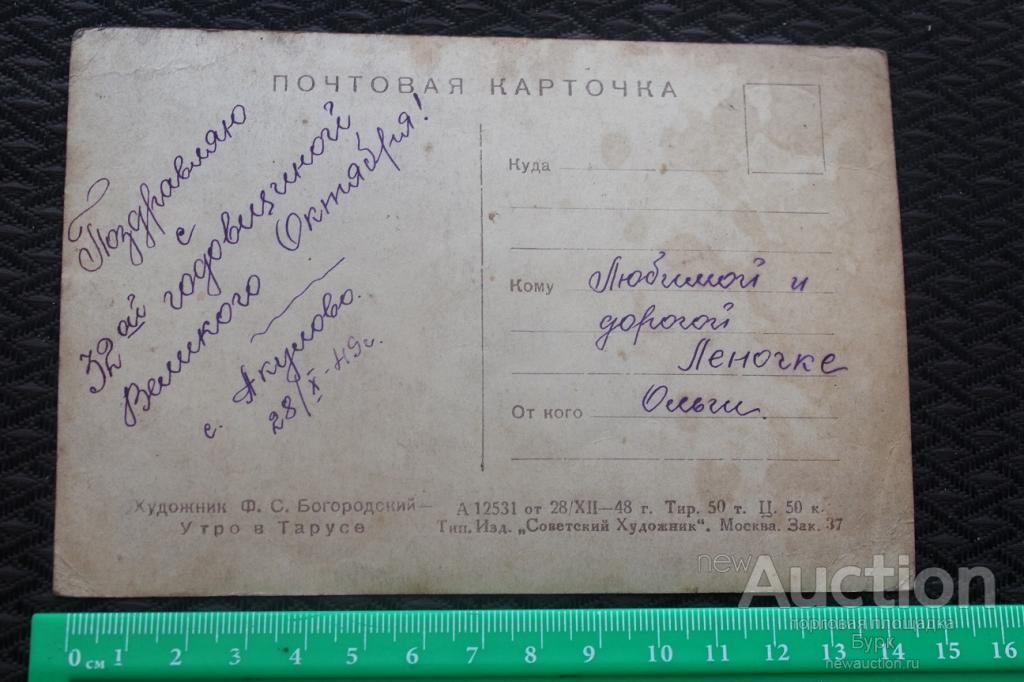 ПОЧТОВАЯ КАРТОЧКА
Поздравляю
с
32ой годовщиной
Великого Октября!
с. Акулово.
28/X-49г.
Куда
Кому Любимой и
дорогой
Леночке
От кого Ольги.
Художник Ф. С. Богородский—
Утро в Тарусе
А 12531 от 28/XII—48 г. Тир. 50 т. Ц. 50 к.
Тип. Изд. „Советский Художник". Москва. Зак. 37
newAuction
торговая площадка
Бурк
newauction.ru
0 см 1 2 3 4 5 6 7 8 9 10 11 12 13 14 15 16